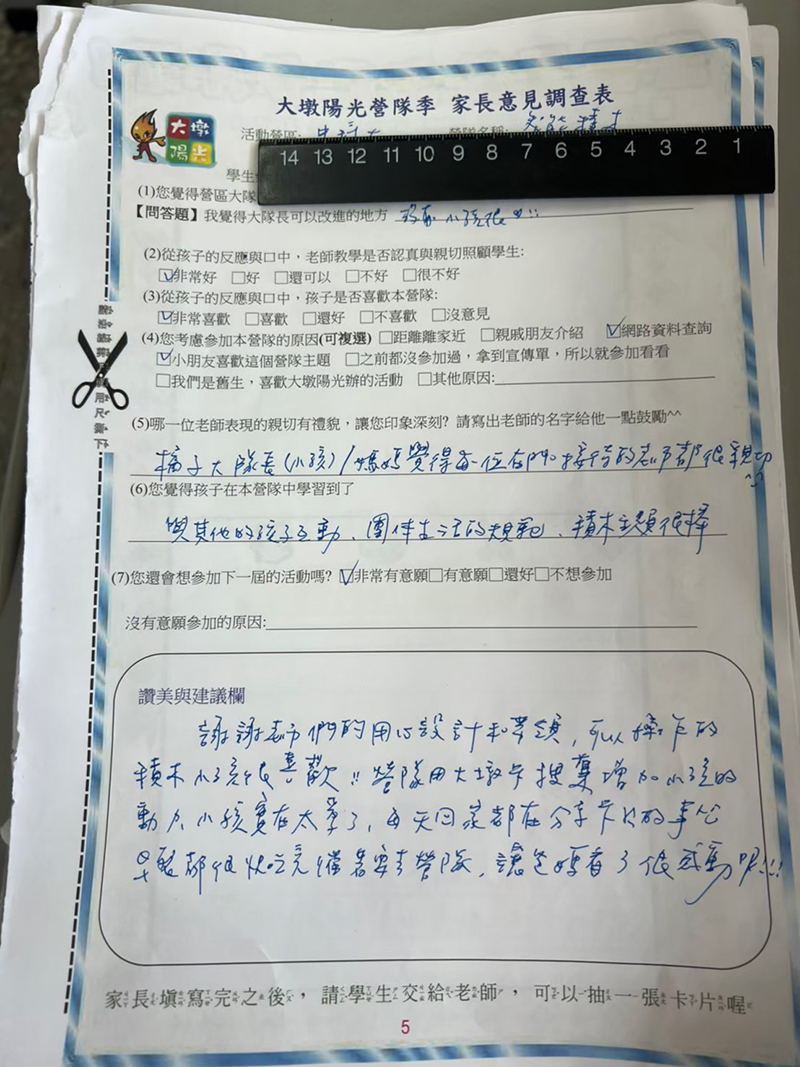 大墩陽光營隊季 家長意見調查表
大墩
陽光
活動營區: 中科大 營隊名稱: 智能積木
14 13 12 11 10 9 8 7 6 5 4 3 2 1
學生
(1)您覺得營區大隊
【問答題】我覺得大隊長可以改進的地方 小孩很
(2)從孩子的反應與口中，老師教學是否認真與親切照顧學生:
☑非常好 □好 □還可以 □不好 □很不好
(3)從孩子的反應與口中，孩子是否喜歡本營隊:
☑非常喜歡 □喜歡 □還好 □不喜歡 □沒意見
(4)您考慮參加本營隊的原因(可複選) □距離離家近 □親戚朋友介紹 ☑網路資料查詢
☑小朋友喜歡這個營隊主題 □之前都沒參加過，拿到宣傳單，所以就參加看看
□我們是舊生，喜歡大墩陽光辦的活動 □其他原因:
(5)哪一位老師表現的親切有禮貌，讓您印象深刻? 請寫出老師的名字給他一點鼓勵^^
橘子大隊長(小孩)/媽媽覺得每一位在門口接待的老師都很親切
(6)您覺得孩子在本營隊中學習到了
與其他的孩子互動、團体生活的規範、積木主題很棒
(7)您還會想參加下一屆的活動嗎? ☑非常有意願□有意願□還好□不想參加
沒有意願參加的原因:
讚美與建議欄
謝謝老師們的用心設計和帶領，可以操作的
積木小孩很喜歡!! 營隊用大墩卡搜集增加小孩的
動力，小孩實在太愛了，每天回家都在分享卡片的事公
早餐都很快吃完催著要去營隊，讓爸媽看了很感動呢!!!
家長填寫完之後，請學生交給老師，可以抽一張卡片喔
5